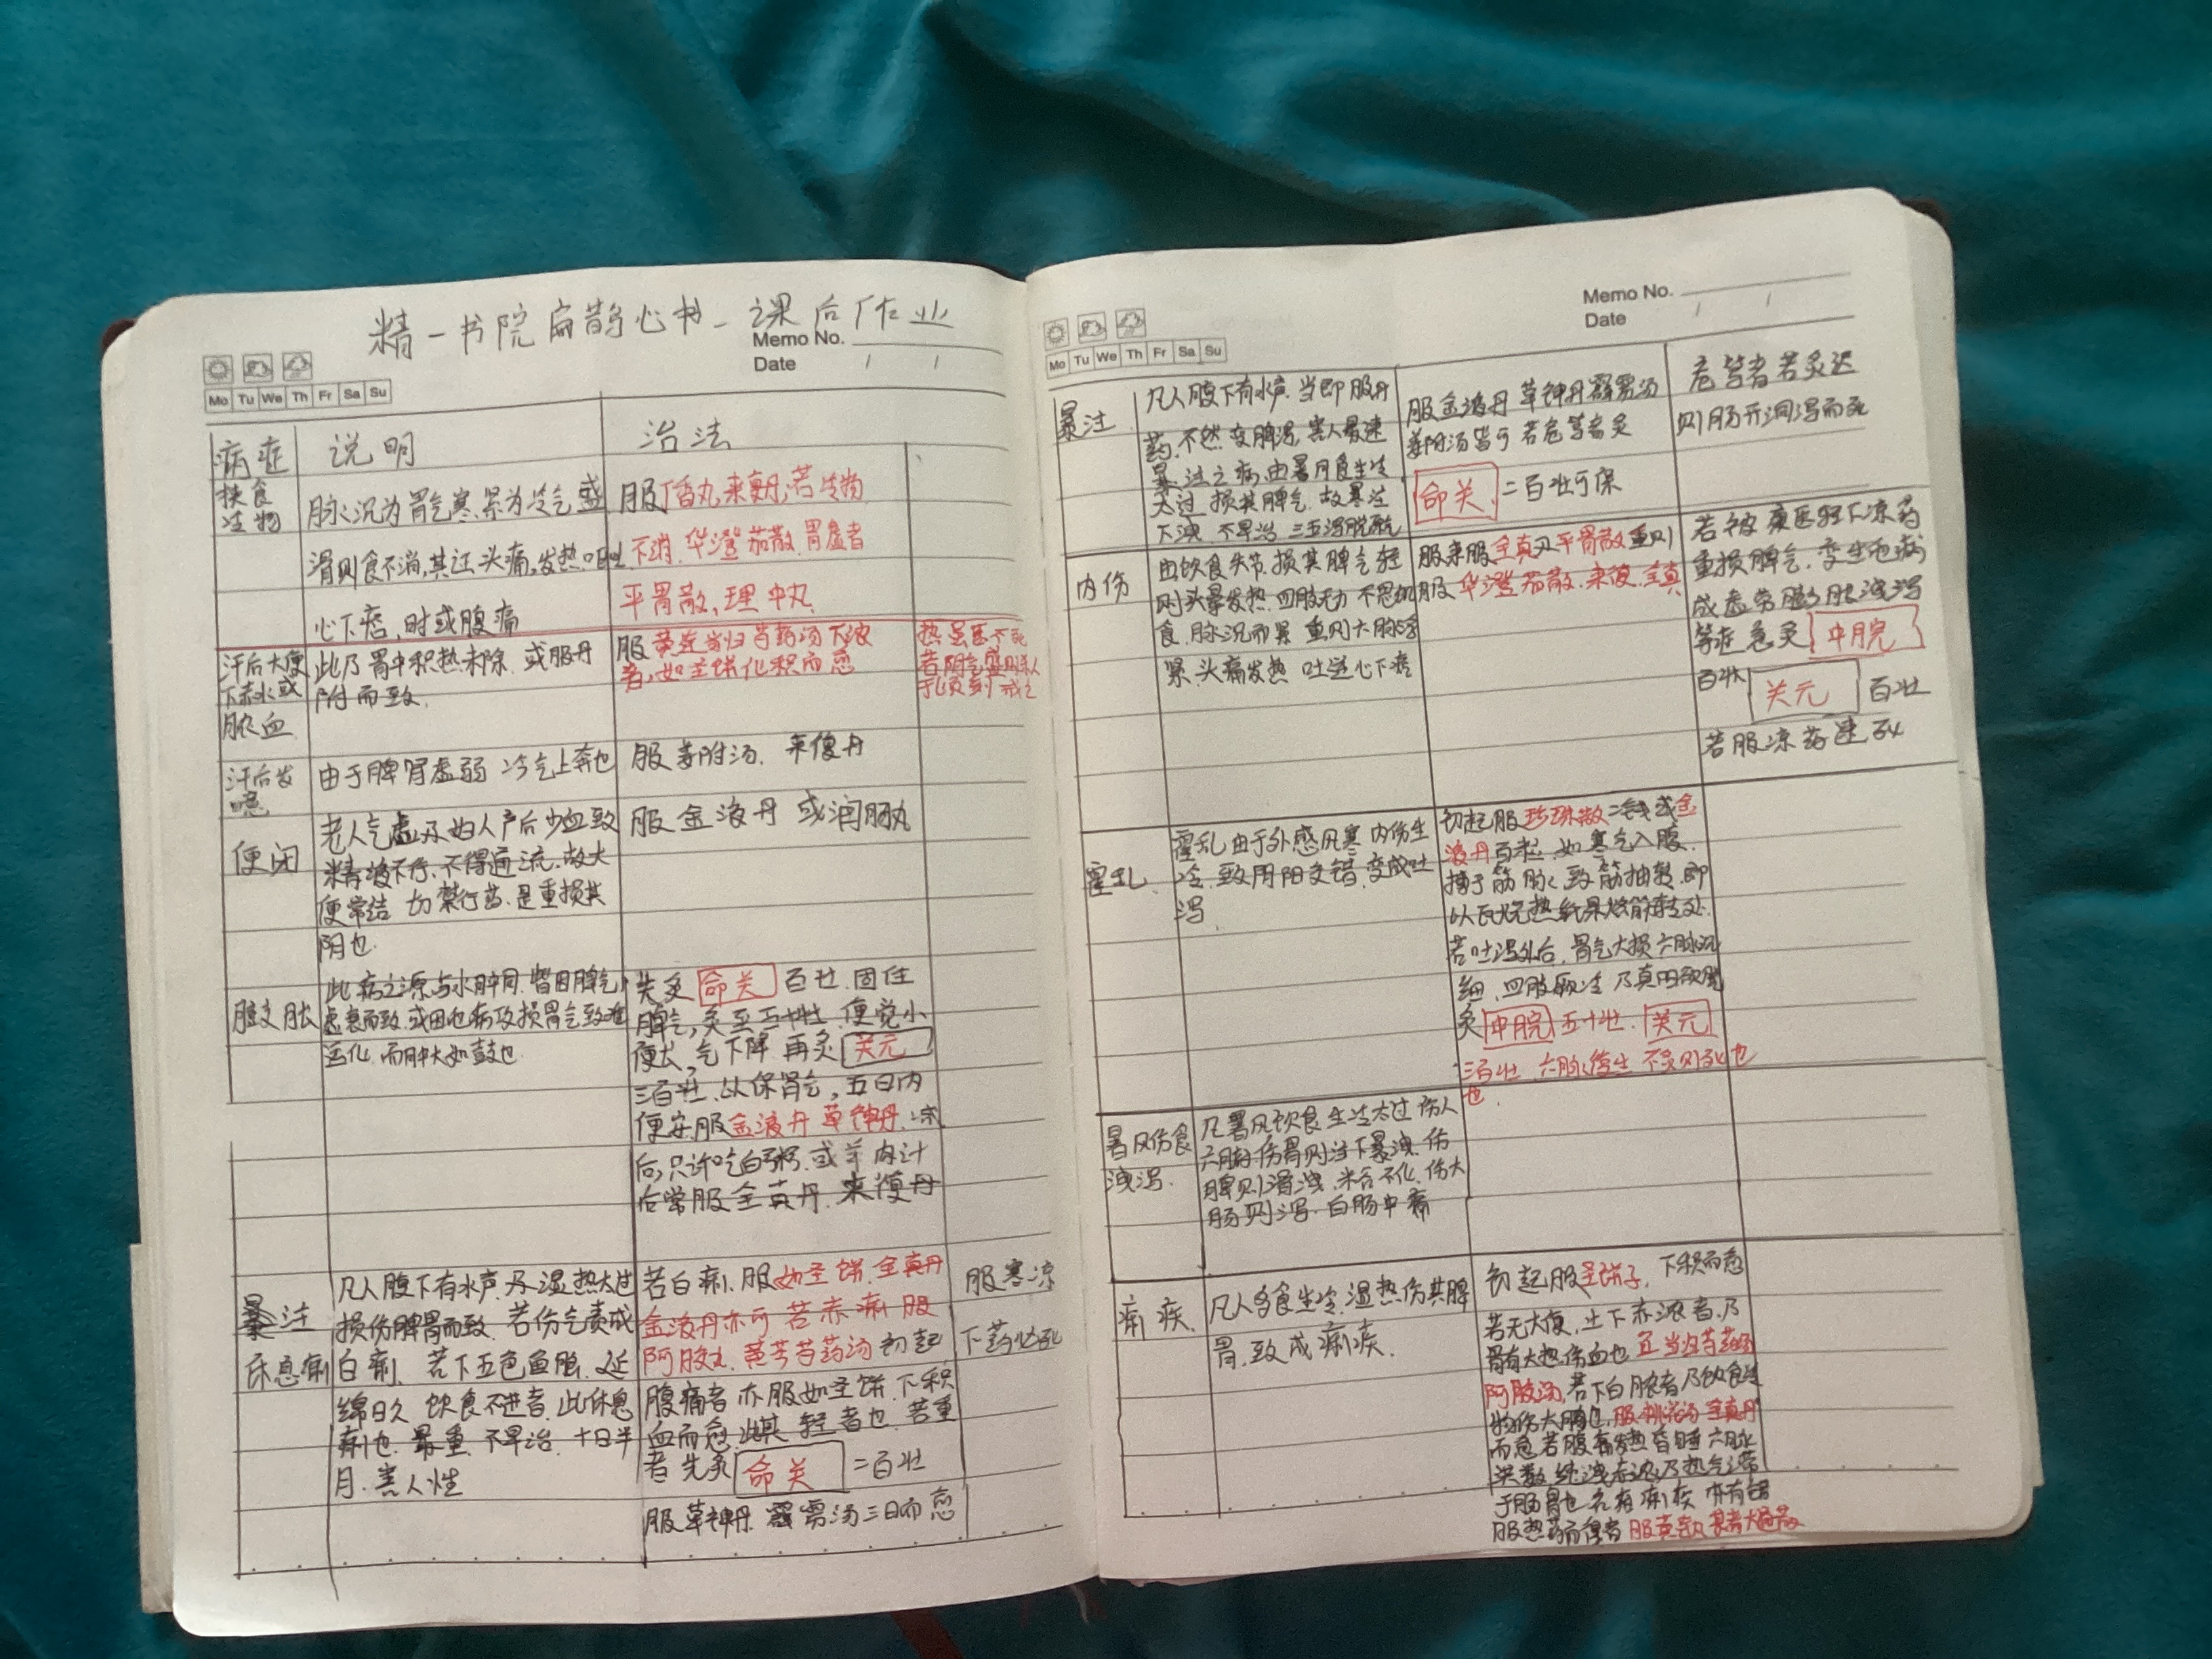 精一书院扁鹊心书-课后作业
Memo No.
Date / /
Mo Tu We Th Fr Sa Su
病症
说明
治法
挟食
冷物
脉沉为胃气寒,紧为冷气盛
滑则食不消,其证头痛,发热,呕吐
心下痞,时或腹痛
服丁香丸,来复丹,若冷物
下消.华澄茄散.胃虚者
平胃散,理中丸
汗后大便
下赤水或
脓血
此乃胃中积热未除.或服丹
附而致.
服黄连当归芍药汤下浓
者,如圣饼化积而愈
热虽医不死
者阴气盛则杀人
于顷刻 戒之
汗后发
噫
由于脾肾虚弱 冷气上奔也
服姜附汤.来復丹
便闭
老人气虚及妇人产后少血致
精液不行,不得通流.故大
便常结 切禁行药.是重损其
阴也
服金液丹 或润肠丸
胀
此病之源与水肿同.皆因脾气
虚衰而致.或因他病攻损胃气致难
运化.而肿大如鼓也
先灸命关百壮.固住
脾气,灸至五十壮.便觉小
便长,气下降.再灸关元
三百壮.以保肾气,五日内
便安.服金液丹 草神丹.减
后,只许吃白粥.或羊肉汁
后常服全真丹.来復丹
暴注
休息痢
凡人腹下有水声.及湿热太过
损伤脾胃而致.若伤气责成
白痢.若下五色鱼脑.延
绵日久 饮食不进者.此休息
痢也.最重.不早治.十日半
月.害人性
若白痢.服如圣饼.全真丹
金液丹亦可 若赤痢 服
阿胶丸.黄芩芍药汤 初起
腹痛者 亦服如圣饼.下积
血而愈.此其轻者也.若重
者先灸命关二百壮
服草神丹.霹雳汤三日而愈
服寒凉
下药必死
Memo No.
Date / /
Mo Tu We Th Fr Sa Su
暴注
凡人腹下有水声.当即服丹
药.不然.变脾泻,害人最速
暴注之病.由暑月食生冷
太过 损其脾气.故寒注
下洩.不早治 三五泻脱元气
服金液丹 草神丹霹雳汤
姜附汤皆可 若危笃者灸
命关.二百壮可保
危笃者若灸迟
则肠开洞泻而死
内伤
由饮食失节.损其脾气.轻
则头晕发热.四肢无力 不思饮
食.脉沉而紧 重则六脉浮
紧.头痛发热 吐逆心下痞
服来服全真及平胃散重则
服华澄茄散.来復.全真
若被庸医轻下凉药
重损脾气.变生他病
成虚劳臌胀洩泻
等症 急灸中脘
百壮 关元 百壮
若服凉药速死
霍乱.
霍乱由于外感风寒 内伤生
冷.致阴阳交错.变成吐
泻
初起服珍珠散二钱或金
液丹百粒.如寒气入腹.
搏于筋脉.致筋抽转.即
以瓦烧热纸裹烙筋转处.
若吐泻外后.胃气大损六脉沉
细.四肢厥冷 乃真阳欲脱
灸中脘五十壮.关元
三百壮.六脉復生 不灸则死也
也.
暑风伤食
洩泻.
凡暑风饮食生冷太过 伤人
六腑.伤胃则注下暴洩.伤
脾则滑洩.米谷不化.伤大
肠则泻.白肠中痛
痢疾.
凡人多食生冷.湿热伤其脾
胃.致成痢疾.
初起服圣饼子.下积而愈
若无大便,止下赤浓者.乃
胃有大热伤血也 宜当归芍药汤
阿胶汤,若下白脓者乃饮食生
物伤大肠也,服桃花汤 全真丹
而愈.若腹痛发热昏睡六脉
洪数 纯洩赤浓乃热气滞
于肠胃也 名疳痢疾 亦有错
服热药而得者